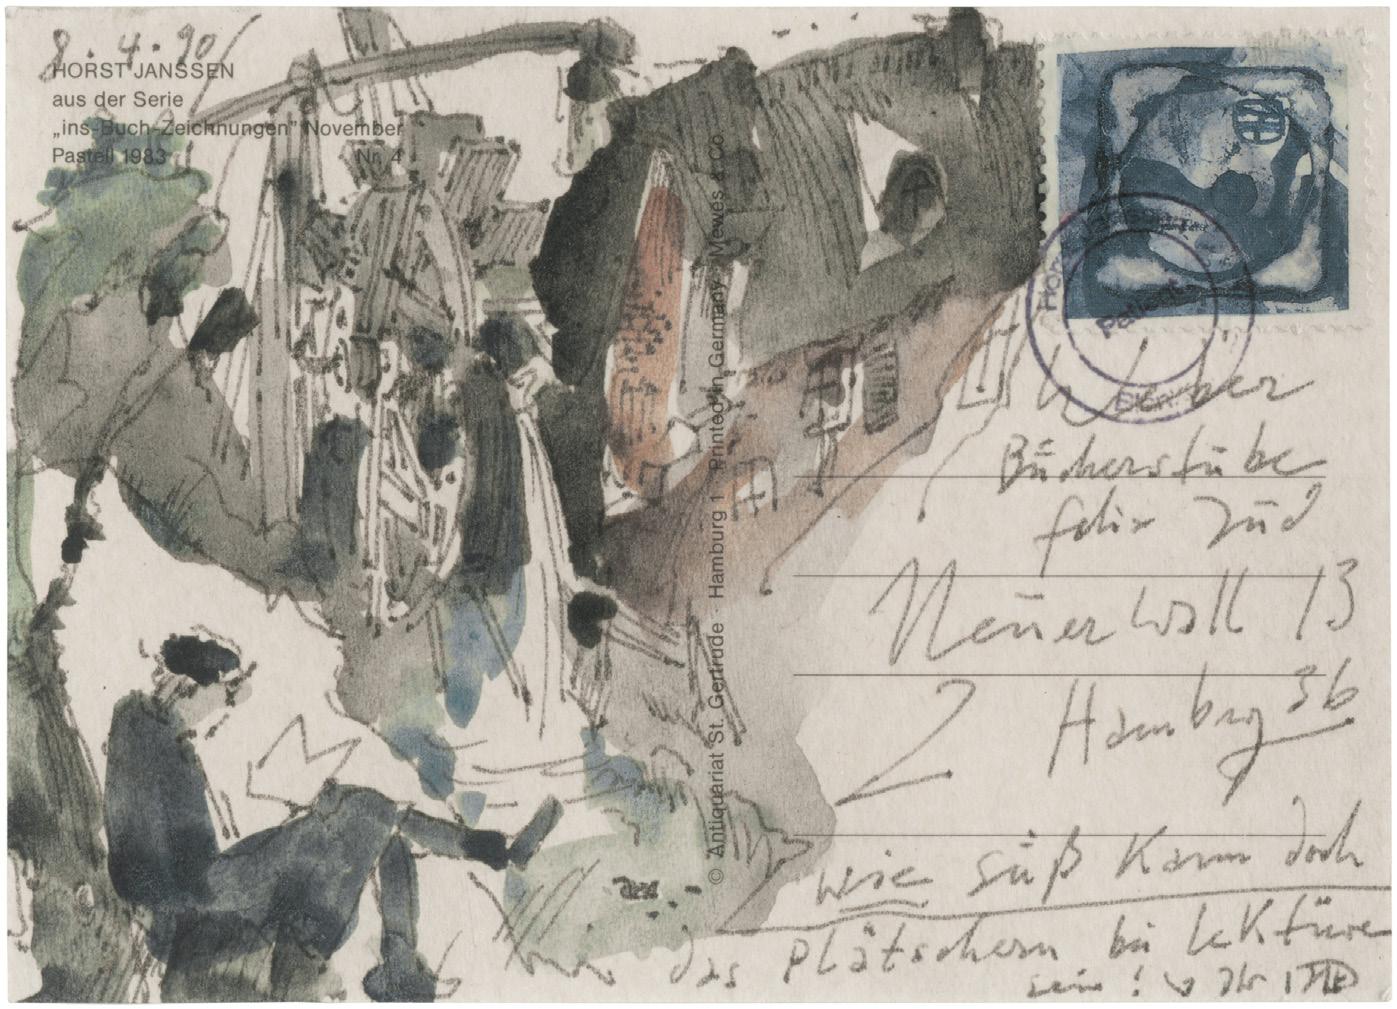 8.4.90
HORST JANSSEN
aus der Serie
„ins-Buch-Zeichnungen" November
Pastell 1983 Nr. 4
© Antiquariat St. Gertrude · Hamburg 1 Printed in Germany Mewes & Co
Patient
Bücherstube
felix Jud
Neuer Wall 13
2 Hamburg 36
wie süß kann doch
das plätschern bei lektüre
sein!